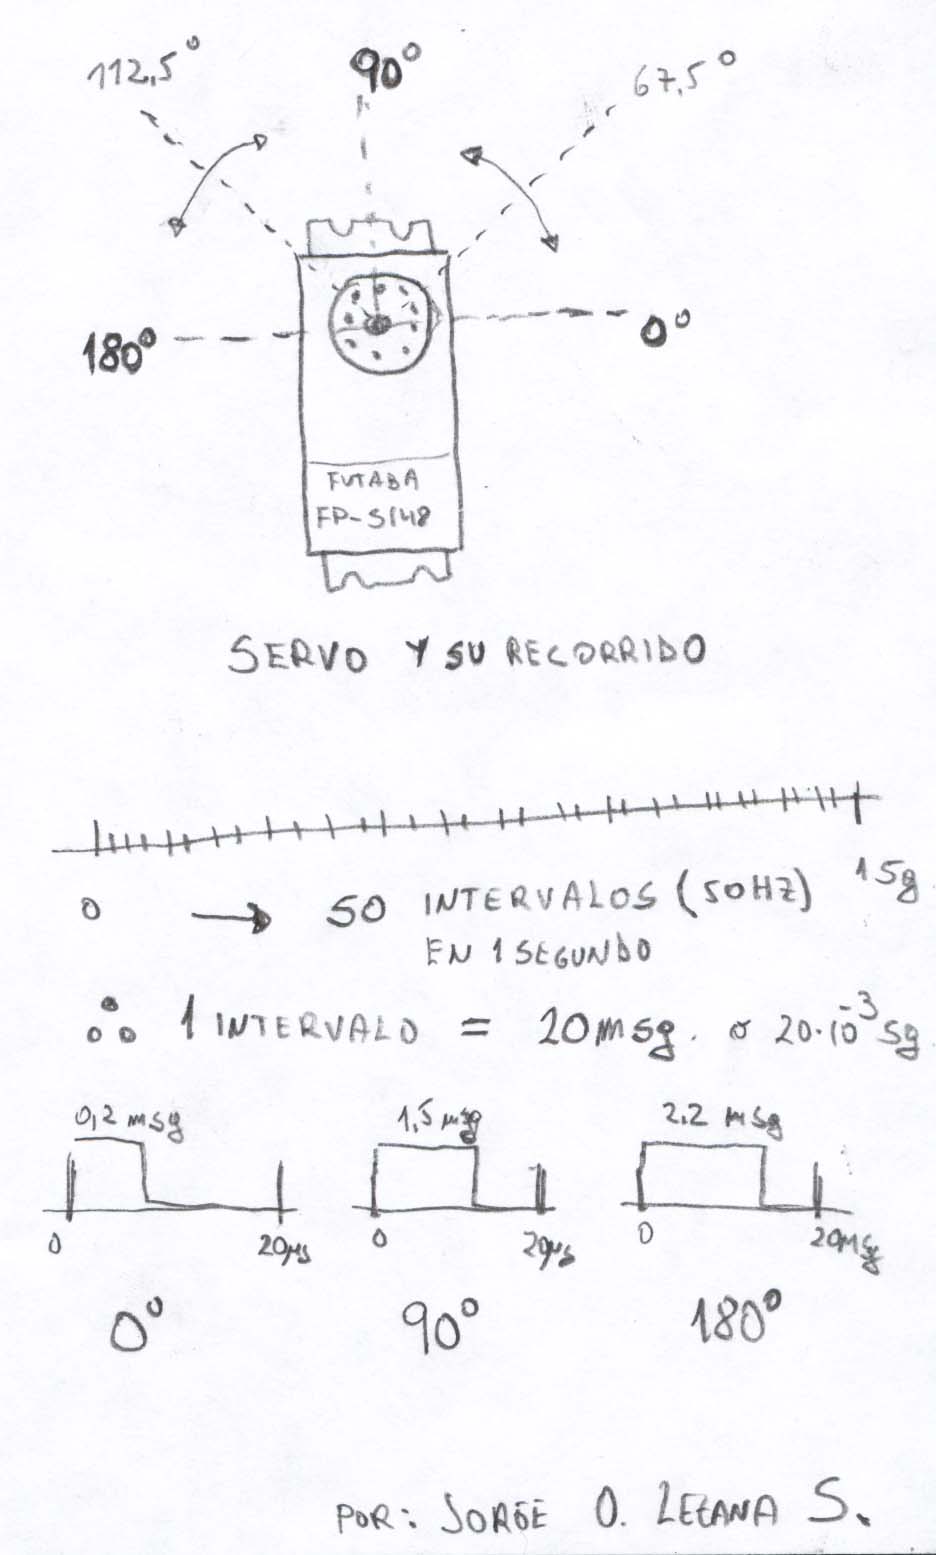 112,5°
90°
67,5°
180°
0°
FUTABA
FP-S148
SERVO Y SU RECORRIDO
0 → 50 INTERVALOS (50HZ) 1 Sg
EN 1 SEGUNDO
∴ 1 INTERVALO = 20 msg. o 20·10⁻³ Sg
0,2 msg 1,5 msg 2.2 msg
0 20µs 0 20µs 0 20µSg
0° 90° 180°
POR: JORGE O. LEZANA S.